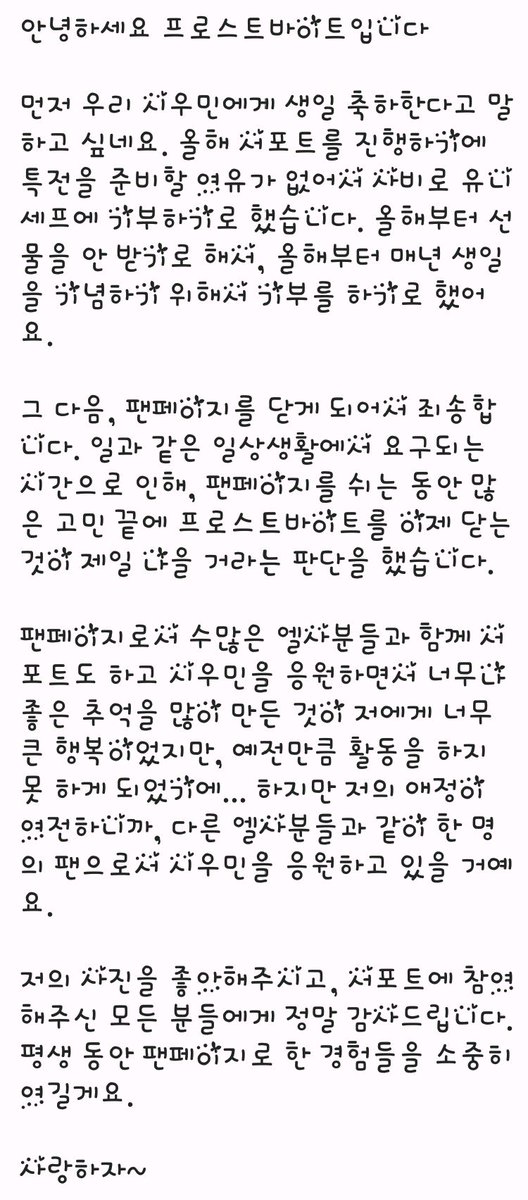 안녕하세요 프로스트바이트입니다
먼저 우리 시우민에게 생일 축하한다고 말
하고 싶네요. 올해 서포트를 진행하기에
특전을 준비할 여유가 없어서 사비로 유니
세프에 기부하기로 했습니다. 올해부터 선
물을 안 받기로 해서, 올해부터 매년 생일
을 기념하기 위해서 기부를 하기로 했어
요.
그 다음, 팬페이지를 닫게 되어서 죄송합
니다. 일과 같은 일상생활에서 요구되는
시간으로 인해, 팬페이지를 쉬는 동안 많
은 고민 끝에 프로스트바이트를 이제 닫는
것이 제일 나을 거라는 판단을 했습니다.
팬페이지로서 수많은 엘사분들과 함께 서
포트도 하고 시우민을 응원하면서 너무나
좋은 추억을 많이 만든 것이 저에게 너무
큰 행복이었지만, 예전만큼 활동을 하지
못 하게 되었기에... 하지만 저의 애정이
여전하니까, 다른 엘사분들과 같이 한 명
의 팬으로서 시우민을 응원하고 있을 거예
요.
저의 사진을 좋아해주시고, 서포트에 참여
해주신 모든 분들에게 정말 감사드립니다.
평생 동안 팬페이지로 한 경험들을 소중히
여길게요.
사랑하자~